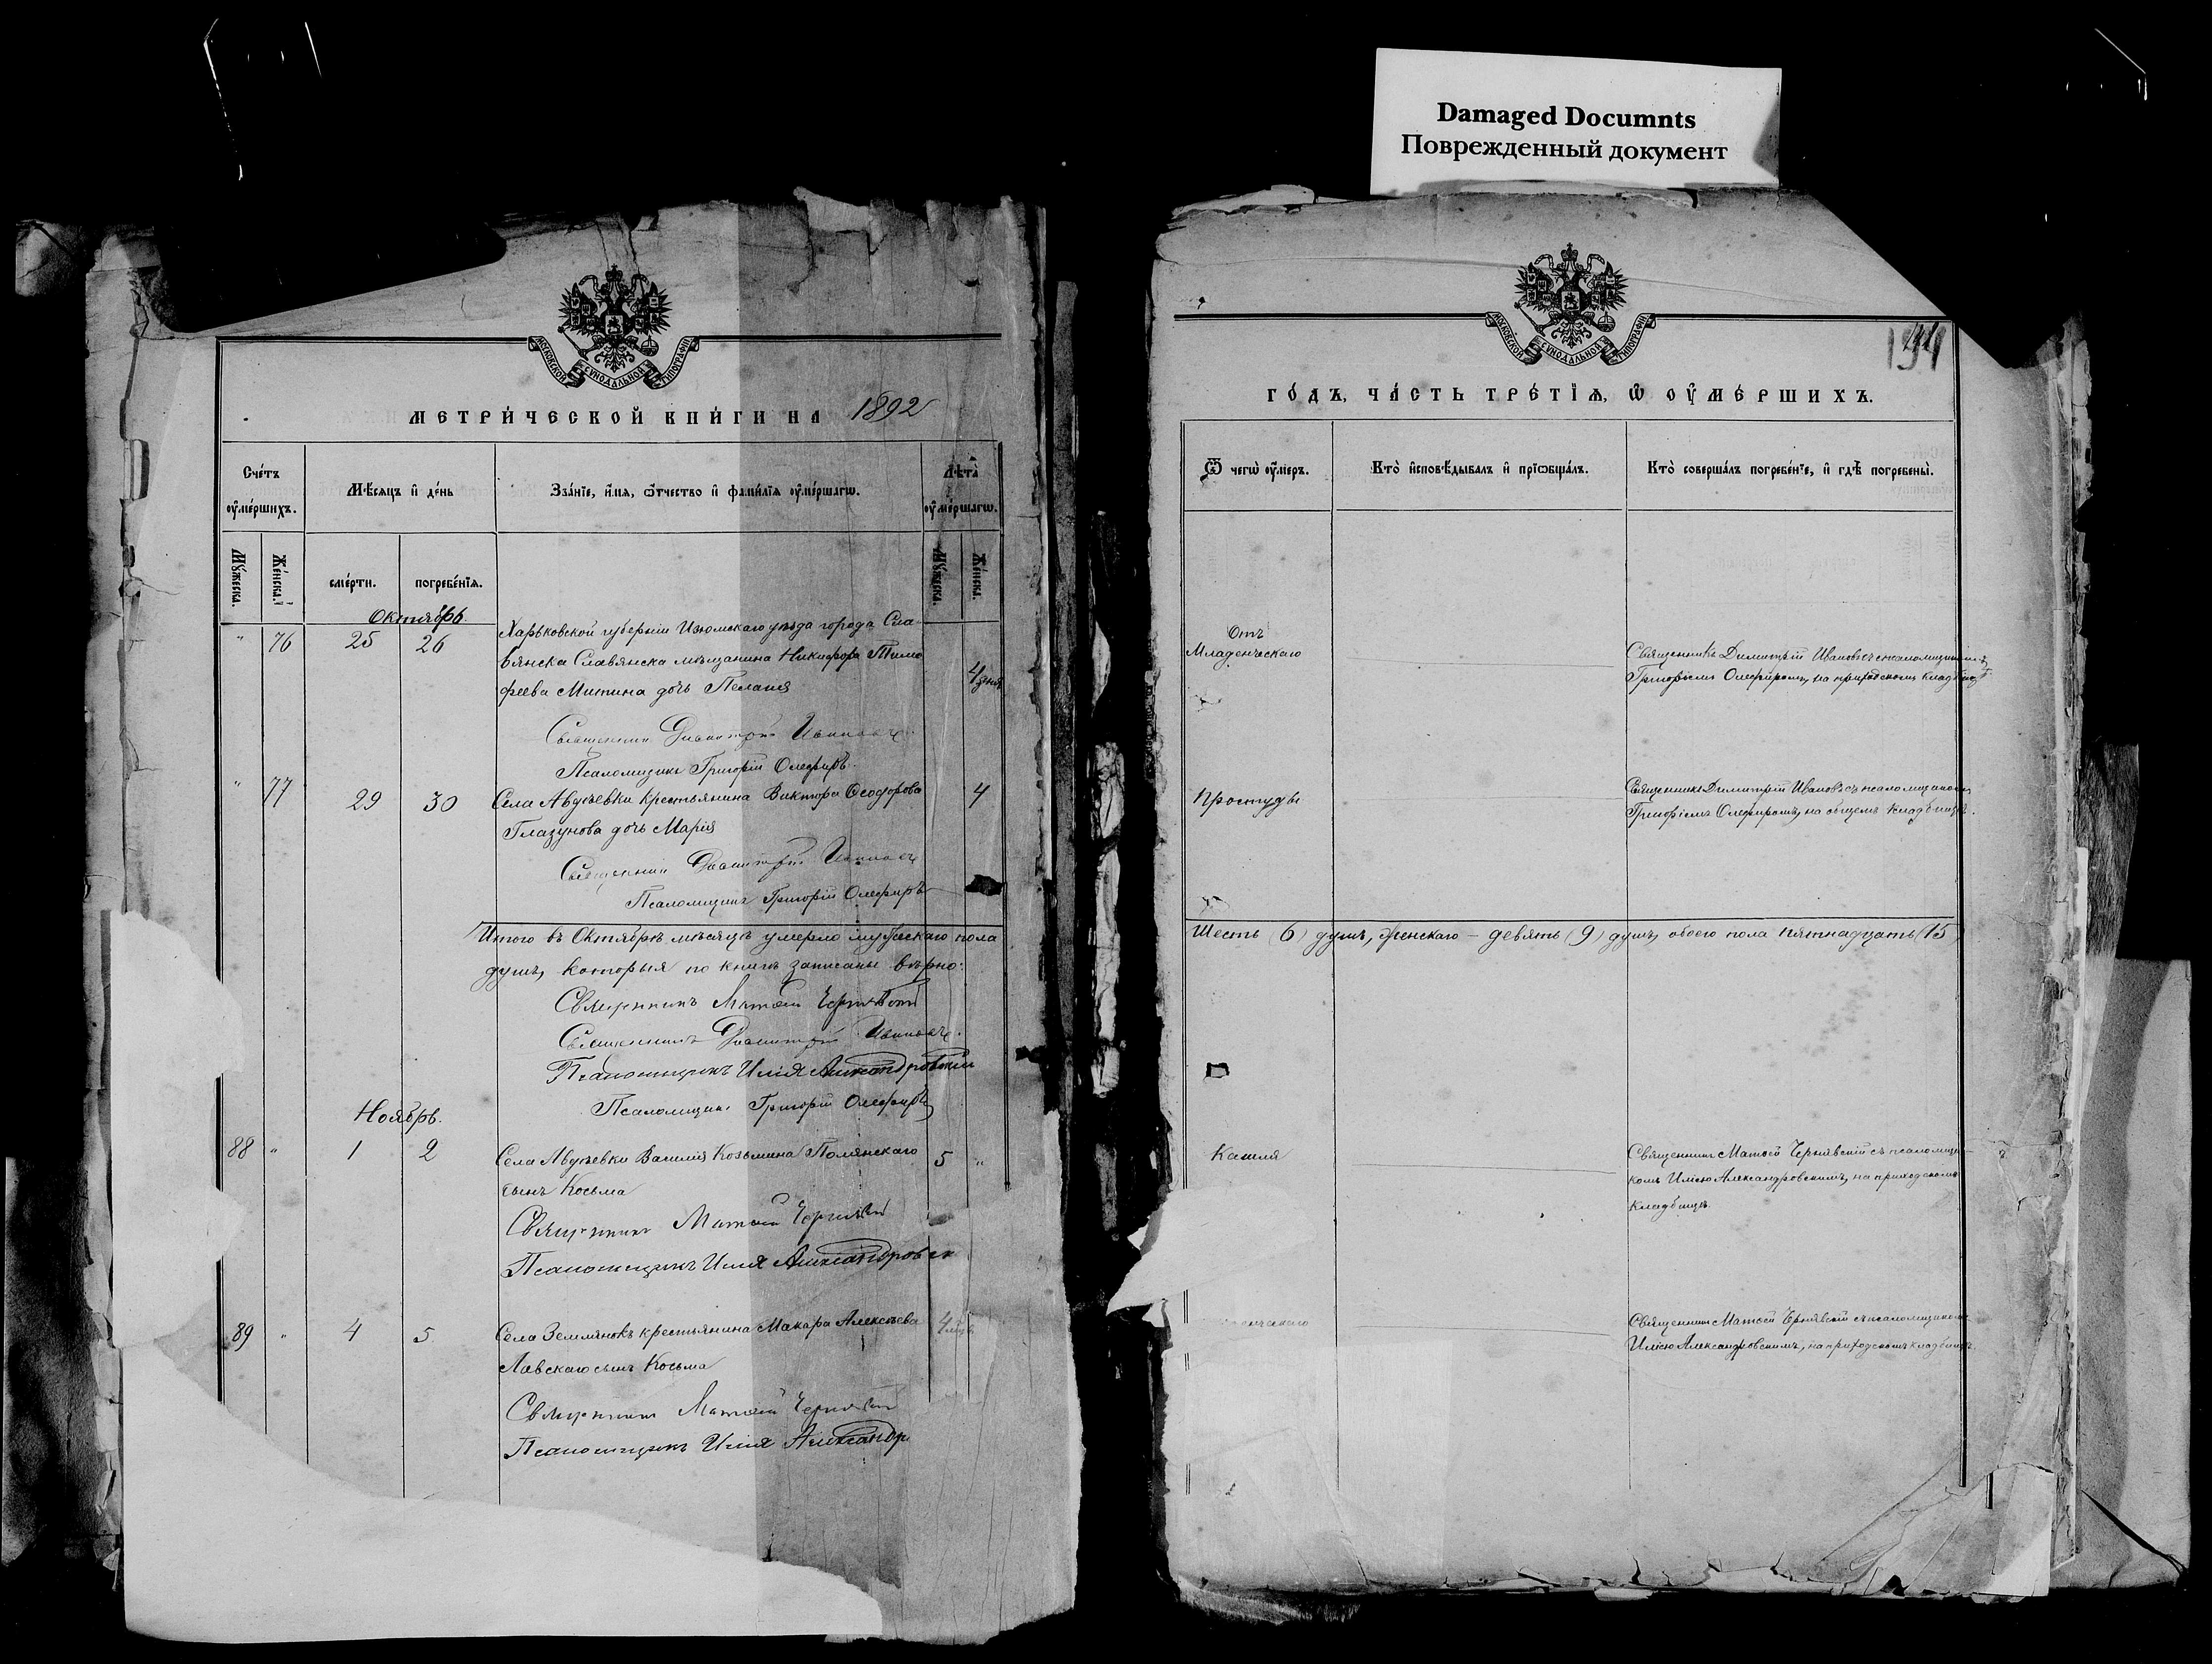 Damaged Documnts
Поврежденный документ
МОСКОВСКОЙ СѴНОДАЛЬНОЙ ТИПОГРАФІИ
МЕТРИ́ЧЕСКОЙ КНИ́ГИ НА 1892
Сче́тъ ᲂу҆ме́ршихъ.
Мѣ́сѧцъ и҆ де́нь
Зва́нїе, и҆́мѧ, ѻ҆́тчество и҆ фами́лїѧ ᲂу҆ме́ршагѡ.
Лѣ́та ᲂу҆ме́ршагѡ.
Мꙋ́жеска.
Же́нска.
сме́рти.
погребе́нїѧ.
Мꙋ́жеска.
Же́нска.
Октябрь.
" 76 25 26 Харьковской губерніи Изюмскаго уѣзда города Сла-
вянска Славянска мѣщанина Никифора Тимо
феева Митина дочь Пелагія
4
Священникъ Димитрій Ивановъ
Псаломщикъ Григорій Олефиръ.
" 77 29 30 Села Авдѣевки крестьянина Виктора Ѳеодорова 4
Глазунова дочь Марія
Священникъ Димитрій Ивановъ
Псаломщикъ Григорій Олефиръ
Итого въ Октябрѣ мѣсяцѣ умерло мужескаго пола
душъ, которыя по книгѣ записаны вѣрно.
Священникъ Матѳей Чернявскій
Священникъ Димитрій Ивановъ.
Псаломщикъ Илія Александровскій
Псаломщикъ Григорій Олефиръ
Ноябрь.
88 " 1 2 Села Авдѣевки Василія Козьмина Полянскаго 5 "
сынъ Косьма
Священникъ Матѳей Чернявскій
Псаломщикъ Илія Александровск
89 " 4 5 Села Землянокъ крестьянина Макара Алексѣева 4
Лавскаго сынъ Косьма
Священникъ Матѳей Чернявскій
Псаломщикъ Илія Александр
МОСКОВСКОЙ СѴНОДАЛЬНОЙ ТИПОГРАФІИ
ГО́ДЪ, ЧА́СТЬ ТРЕ́ТЇѦ, Ѡ҆ ОУ҆МЕ́РШИХЪ.
Ѿ чегѡ̀ ᲂу҆́меръ.
Кто̀ и҆сповѣ́дывалъ и҆ прїѡбща́лъ.
Кто̀ соверша́лъ погребе́нїе, и҆ гдѣ̀ погребены̀.
Отъ
Младенческаго
Священникъ Димитрій Ивановъ съ псаломщикомъ
Григоріемъ Олефиромъ, на приходскомъ кладбищѣ
Простуды
Священникъ Димитрій Ивановъ съ псаломщикомъ
Григоріемъ Олефиромъ, на общемъ кладбищѣ.
Шесть (6) душъ, женскаго – девять (9) душъ, обоего пола пятнадцать (15)
Кашля
Священникъ Матѳей Чернявскій съ псаломщи-
комъ Иліею Александровскимъ, на приходскомъ
кладбищѣ.
Священникъ Матѳей Чернявскій съ псаломщикомъ
Иліею Александровскимъ, на приходскомъ кладбищѣ.